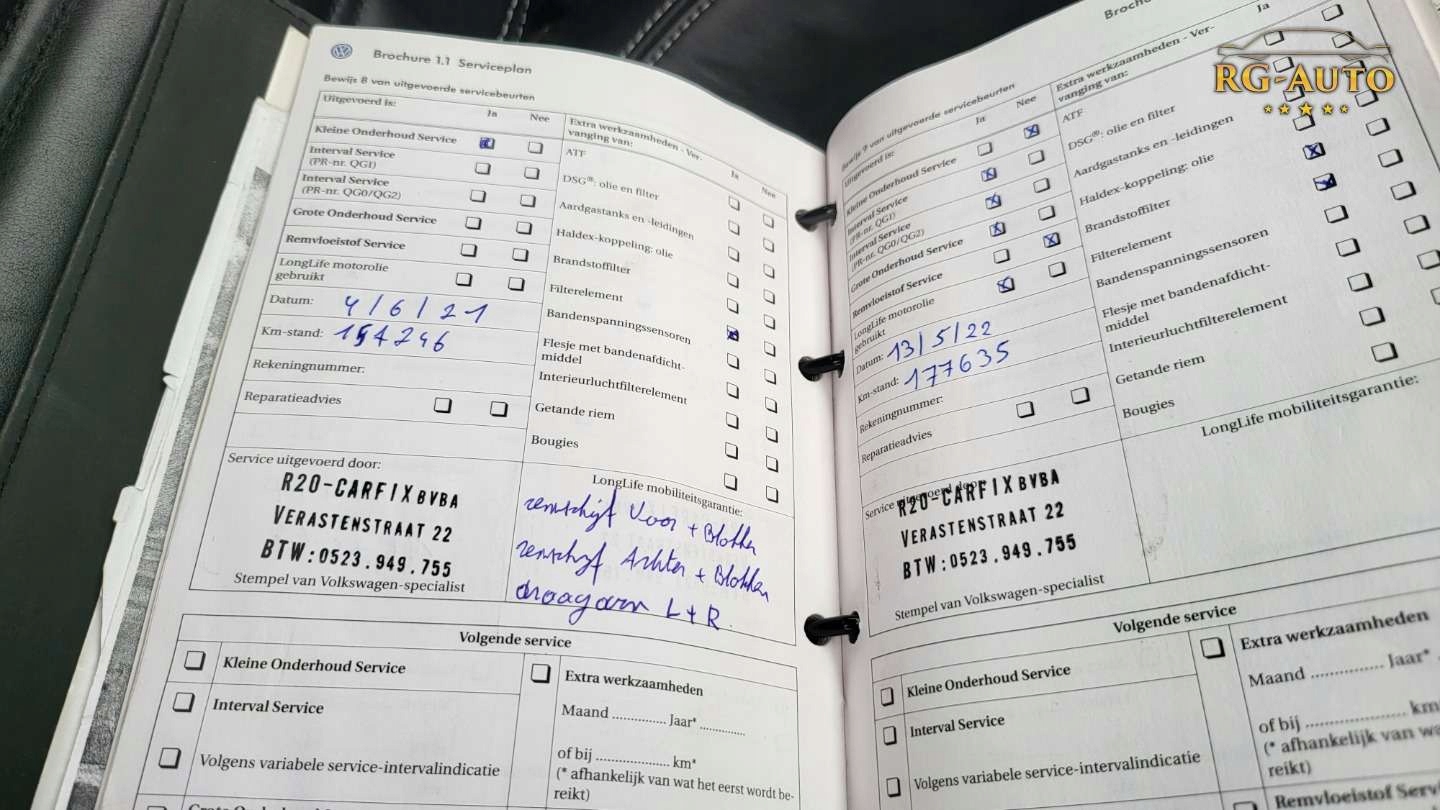 Brochure 1.1 Serviceplan
Bewijs 8 van uitgevoerde servicebeurten
Uitgevoerd is:
Ja
Nee
Kleine Onderhoud Service
Interval Service
(PR-nr. QG1)
Interval Service
(PR-nr. QG0/QG2)
Grote Onderhoud Service
Remvloeistof Service
LongLife motorolie
gebruikt
Datum: 4/6/21
Km-stand: 154246
Rekeningnummer:
Reparatieadvies
Extra werkzaamheden - Ver-
vanging van:
Ja
Nee
ATF
DSG®: olie en filter
Aardgastanks en -leidingen
Haldex-koppeling: olie
Brandstoffilter
Filterelement
Bandenspanningssensoren
Flesje met bandenafdicht-
middel
Interieurluchtfilterelement
Getande riem
Bougies
Service uitgevoerd door:
R20-CARFIX BVBA
VERASTENSTRAAT 22
BTW:0523.949.755
Stempel van Volkswagen-specialist
LongLife mobiliteitsgarantie:
remschijf Voor + Blokken
remschijf Achter + Blokken
draagarm L+R
Volgende service
Kleine Onderhoud Service
Interval Service
Volgens variabele service-intervalindicatie
Extra werkzaamheden
Maand .............. Jaar* ............
of bij .................... km*
(* afhankelijk van wat het eerst wordt be-
reikt)
Bewijs 9 van uitgevoerde servicebeurten
Uitgevoerd is:
Ja
Nee
Kleine Onderhoud Service
Interval Service
(PR-nr. QG1)
Interval Service
(PR-nr. QG0/QG2)
Grote Onderhoud Service
Remvloeistof Service
LongLife motorolie
gebruikt
Datum: 13/5/22
Km-stand: 177635
Rekeningnummer:
Reparatieadvies
Extra werkzaamheden - Ver-
vanging van:
Ja
ATF
DSG®: olie en filter
Aardgastanks en -leidingen
Haldex-koppeling: olie
Brandstoffilter
Filterelement
Bandenspanningssensoren
Flesje met bandenafdicht-
middel
Interieurluchtfilterelement
Getande riem
Bougies
Service uitgevoerd door:
R20-CARFIX BVBA
VERASTENSTRAAT 22
BTW:0523.949.755
Stempel van Volkswagen-specialist
LongLife mobiliteitsgarantie:
Volgende service
Kleine Onderhoud Service
Interval Service
Volgens variabele service-intervalindicatie
Extra werkzaamheden
Maand ............ Jaar*
of bij .................... km*
(* afhankelijk van
reikt)
Remvloeistof
RG-AUTO